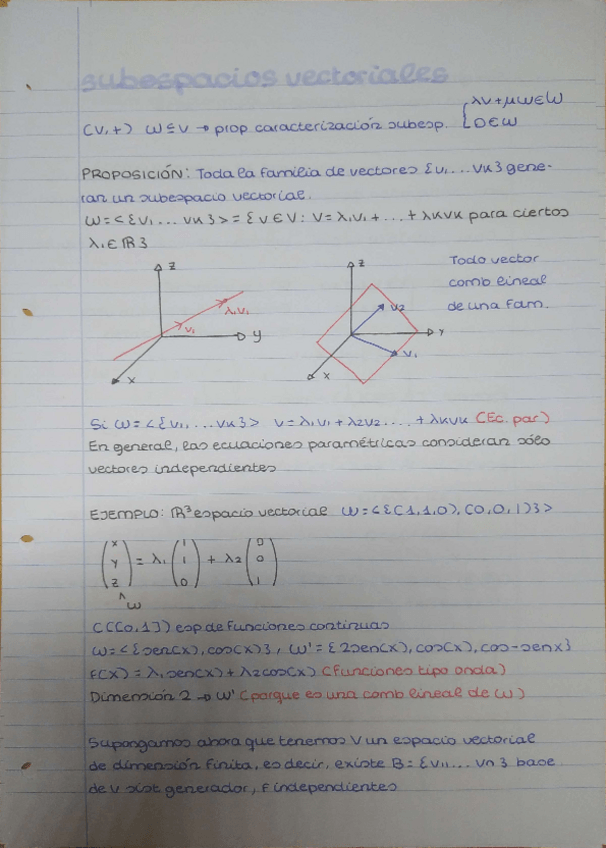 subespacios vectoriales
(V,+) W⊆V → prop caracterización subesp. { λv+μw∈W
0∈W
PROPOSICIÓN: Toda la familia de vectores {v₁...vk} gene-
ran un subespacio vectorial.
W=<{v₁...vk}>={v∈V: v=λ₁v₁+...+λkvk para ciertos
λᵢ∈ℝ}
z
y
x
v₁
λ₁v₁
z
y
x
v₂
v₁
Todo vector
comb lineal
de una fam.
Si W=<{v₁,...vk}> v=λ₁v₁+λ2v2....+λkvk (Ec. par)
En general, las ecuaciones paramétricas consideran sólo
vectores independientes
EJEMPLO: ℝ³ espacio vectorial W=<{(1,1,0),(0,0,1)}>
(x y z) = λ₁ (1 1 0) + λ2 (0 0 1)
^
W
C([0,1]) esp de funciones continuas
W=<{sen(x), cos(x)}, W'={2sen(x), cos(x), cos-senx}
f(x)=λ₁sen(x)+λ2cos(x) (funciones tipo onda)
Dimensión 2 → W' (porque es una comb lineal de W)
Supongamos ahora que tenemos V un espacio vectorial
de dimensión finita, es decir, existe B={v₁,...vn} base
de V sist generador, F independientes